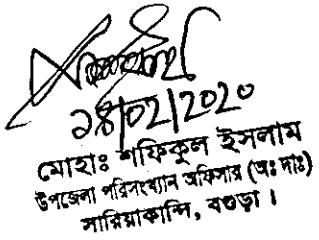 ১৪/02/2020
মোহাঃ শফিকুল ইসলাম
উপজেলা পরিসংখ্যান অফিসার (অঃ দাঃ)
সারিয়াকান্দি, বগুড়া।